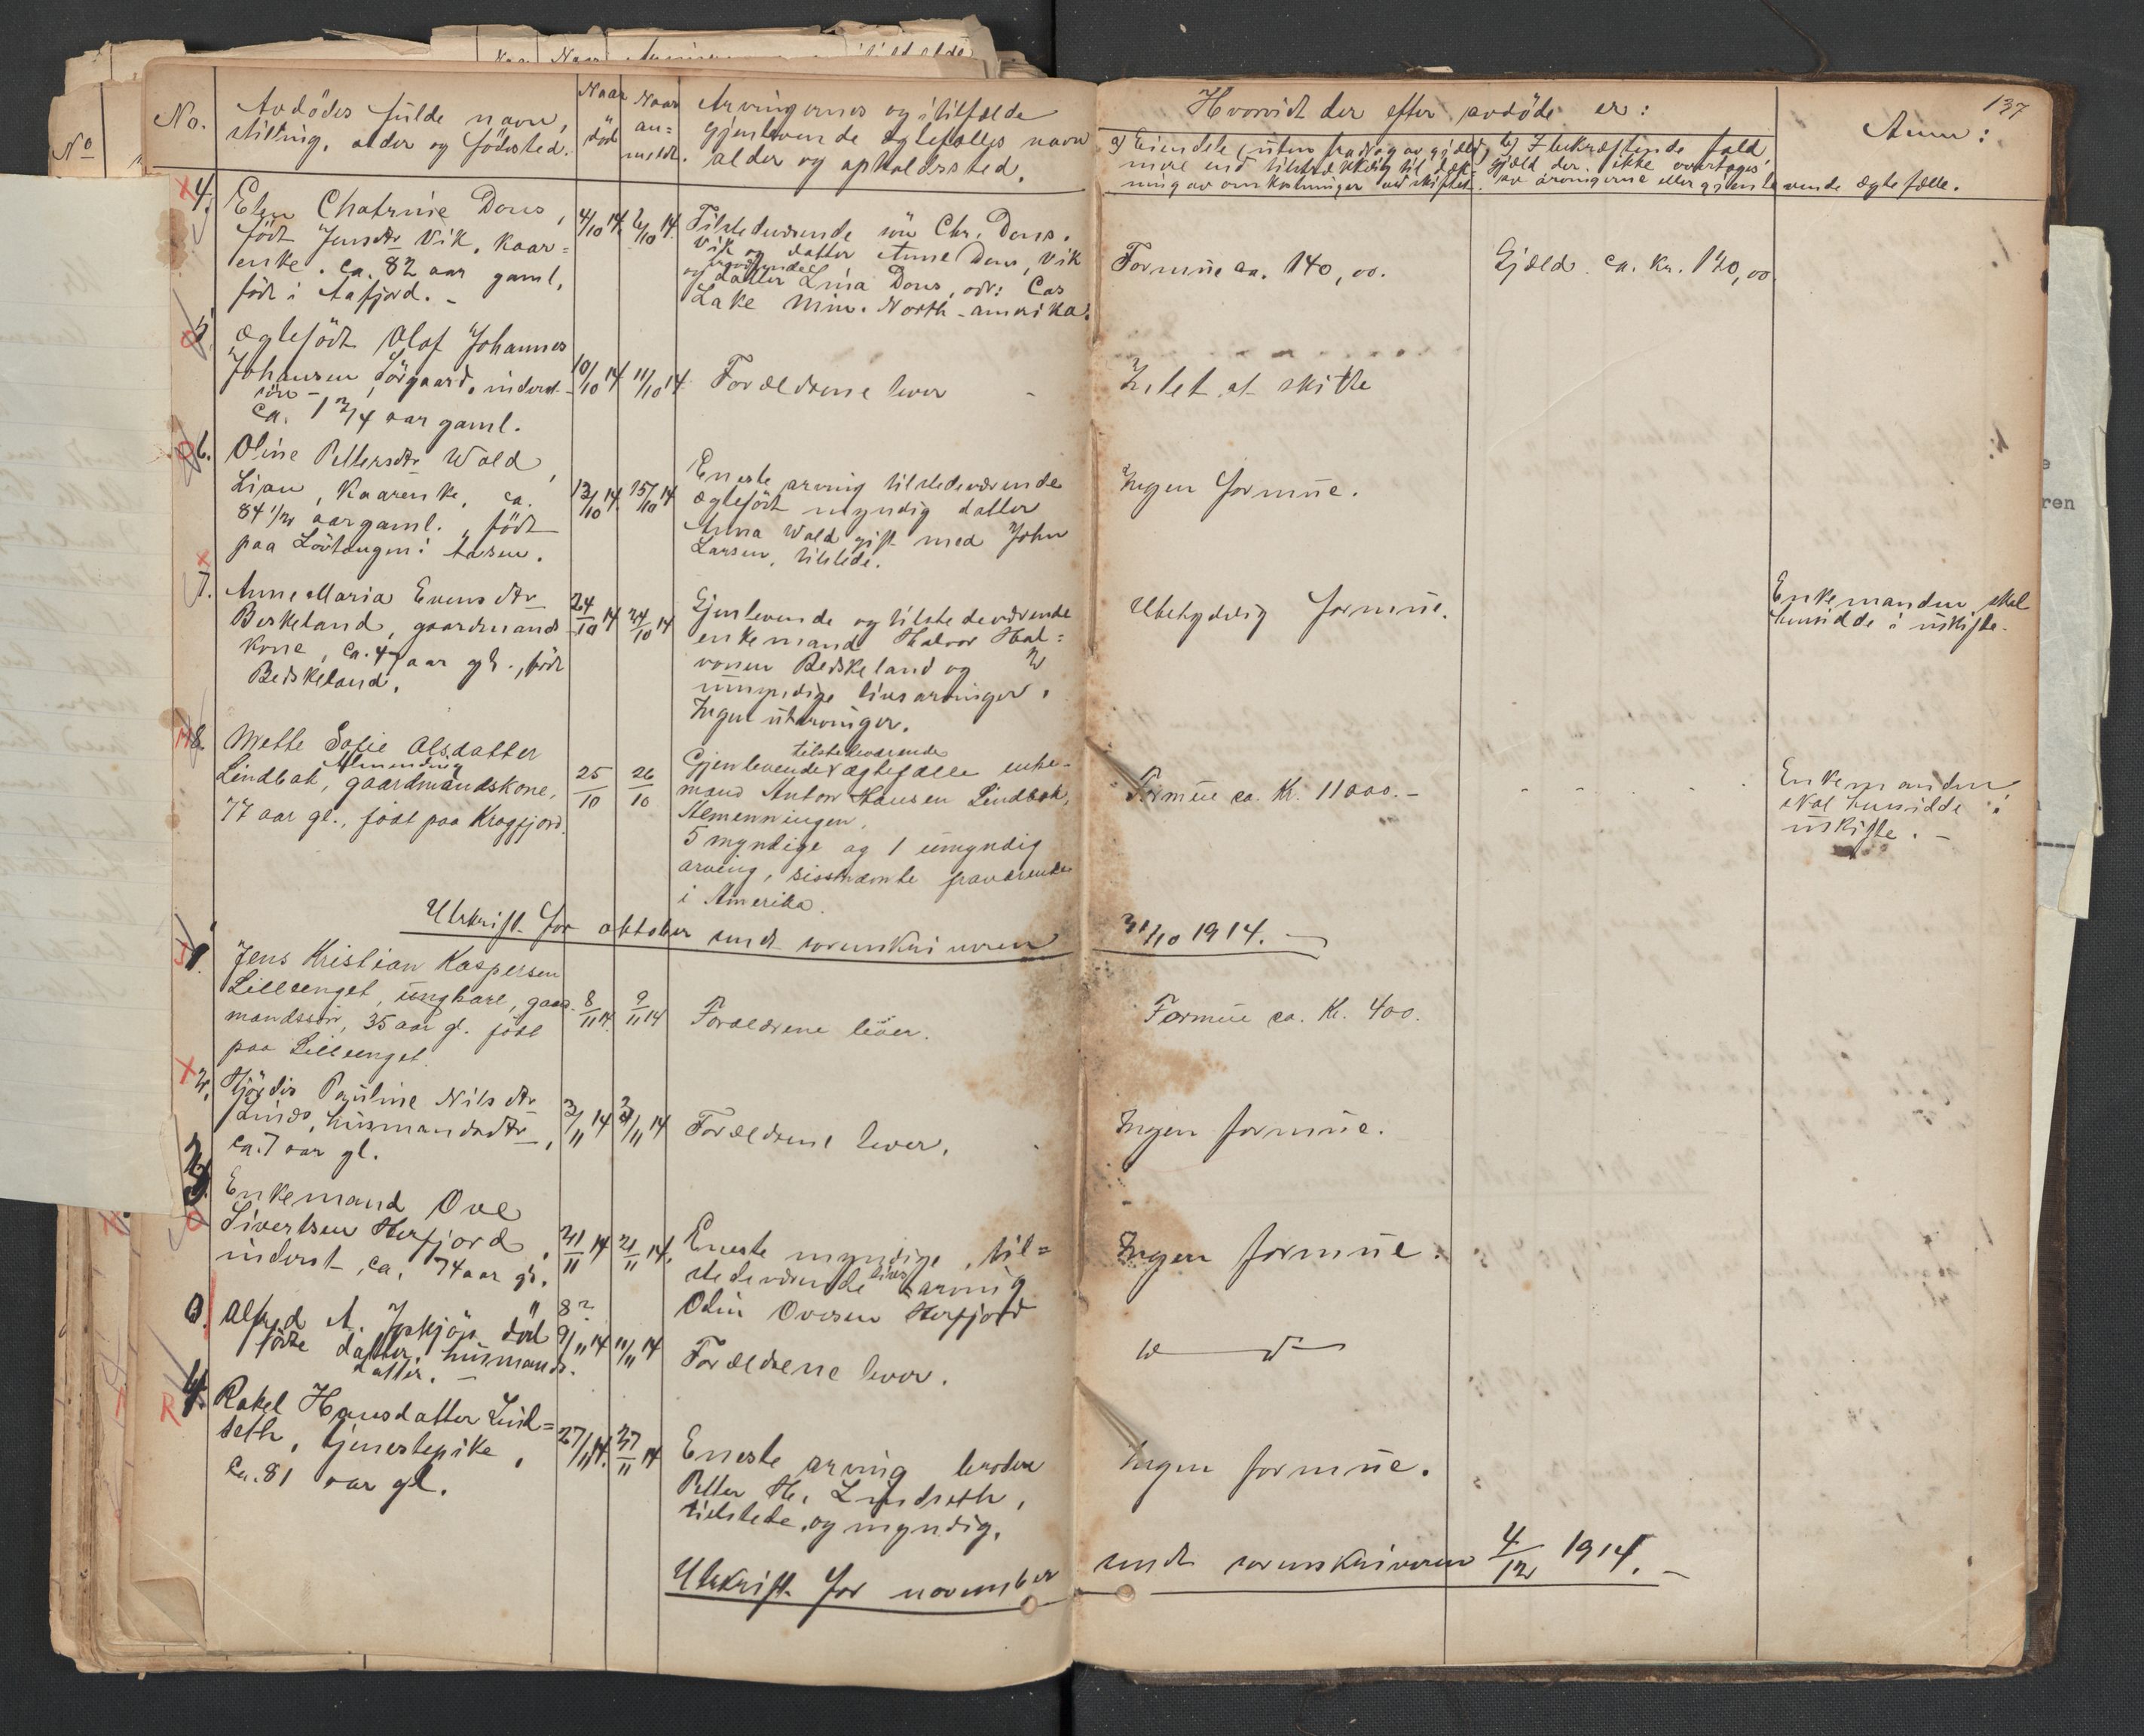 137
No.
Avdödes fulde navn,
stilling, alder og födested.
Naar
död
Naar
an=
meldt.
Arvingernes og i tilfælde
gjenlevende ægtefælles navn
alder og opholdssted.
Hvorvidt der efter avdöde er:
a) Eiendele, uten fradrag av gjæld,
mere end tilstrækkelig til dæk-
ning av omkostninger ved skiftet.
b) I bekræftende fald,
gjæld der ikke overtages
av arvingerne eller gjenlevende ægtefælle.
Anm:
4.
Elen Chatrine Dons,
födt Jensdtr Vik, kaar=
enke. ca. 82 aar gaml,
födt i Aafjord. -
4/10 14.
6/10 14.
Tilstedeværende sön Chr. Dons.
Vik og datter Anne Dons, Vik
og fraværende datter Lina Dons, adr: Cas
Lake Min. North-amerika.
Formue ca. 140,00.
Gjæld ca. kr. 120,00.
5.
Ægtefödt Olaf Johannes
Johansen Sörgaard, inderst-
sön -
ca. 1 3/4 aar gaml.
10/10 14
11/10 14
Forældrene lever -
Intet at skifte
6.
Oline Pettersdtr Wold,
Lian, Kaarenke, ca.
84 1/2 aar gaml., födt
paa Lövtangen i Aasen.
13/10 14.
15/10 14
Eneste arving tilstedeværende
ægtefödt myndig datter
Anna Wold gift med John
Larsen, tilstede.
Ingen formue.
7.
Anne Maria Evensdtr
Berkeland, gaardmands
kone, ca. 47 aar gl., födt
Beiskeland.
24/10 14
24/10 14
Gjenlevende og tilstedeværende
enkemand Halvor Hal=
vorsen Beiskeland og 2
umyndige livsarvinger.
Ingen utarvinger.
Ubetydelig formue.
Enkemanden skal
hensidde i uskifte.
8.
Mette Sofie Olsdatter
Almenning
Lindbak, gaardmandskone,
77 aar gl., født paa Kragfjord.
25/10
26/10
tilstedeværende
Gjenlevende ægtefælle enke-
mand Anton Hansen Lindbak,
Almenningen.
5 myndige og 1 umyndig
arving, sisstnævnte fraværende
i Amerika.
Formue ca. Kr. 11000.-
Enkemanden
skal hensidde i
uskifte. -
Utskrift for oktober sendt sorenskriveren 31/10 1914. -
1.
Jens Kristian Kaspersen
Lilleenget, ungkarl, gaard-
mandssøn, 35 aar gl. født
paa Lilleenget.
8/11 14.
9/11 14
Forældrene lever.
Formue ca. Kr. 400.
2.
Hjördis Pauline Nilsdtr
Linds, husmandsdtr,
ca. 7 aar gl.
3/11 14
21/11 14
Forældrene lever.
Ingen formue.
3.
Enkemand Ove
Sivertsen Herfjord,
inderst, ca. 74 aar gl.
21/11 14
21/11 14.
Eneste myndige, til=
stedeværende livsarving
Olin Ovesen Herfjord
Ingen formue.
0.
Alfred A. Joskjös död
födte datter, husmands-
datter. -
8?
9/11 14
11/11 14
Forældrene lever.
4.
Rakel Hansdatter Lind=
seth, tjenestepike,
ca. 81 aar gl.
27/11 14.
27/11 14
Eneste arving broder
Petter H. Lindseth,
tilstede, og myndig.
Ingen formue.
Utskrift for november sendt sorenskriveren 4/12 1914. -